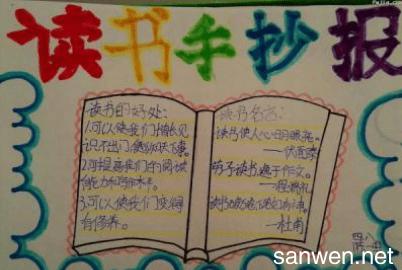 读书手抄报
读书的好处:
1.可以使我们增长见
识不出门能知天下事。
2.可提高我们的阅读
能力和写作水平。
3.可以使我们变得
有修养。
读书名言:
读书使人心明眼亮。
——伏尔泰
劳于读书逸于作文。
——程端礼
—杜甫
sanwen.net